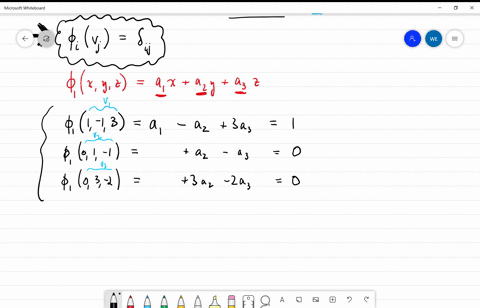 Microsoft Whiteboard
WE
ϕᵢ(vⱼ) = δᵢⱼ
ϕ₁(x, y, z) = a₁x + a₂y + a₃z
v₁
ϕ₁(1, -1, 3) = a₁ - a₂ + 3a₃ = 1
v₂
ϕ₁(0, 1, -1) + a₂ - a₃ = 0
v₃
ϕ₁(0, 3, -2) = +3a₂ - 2a₃ = 0